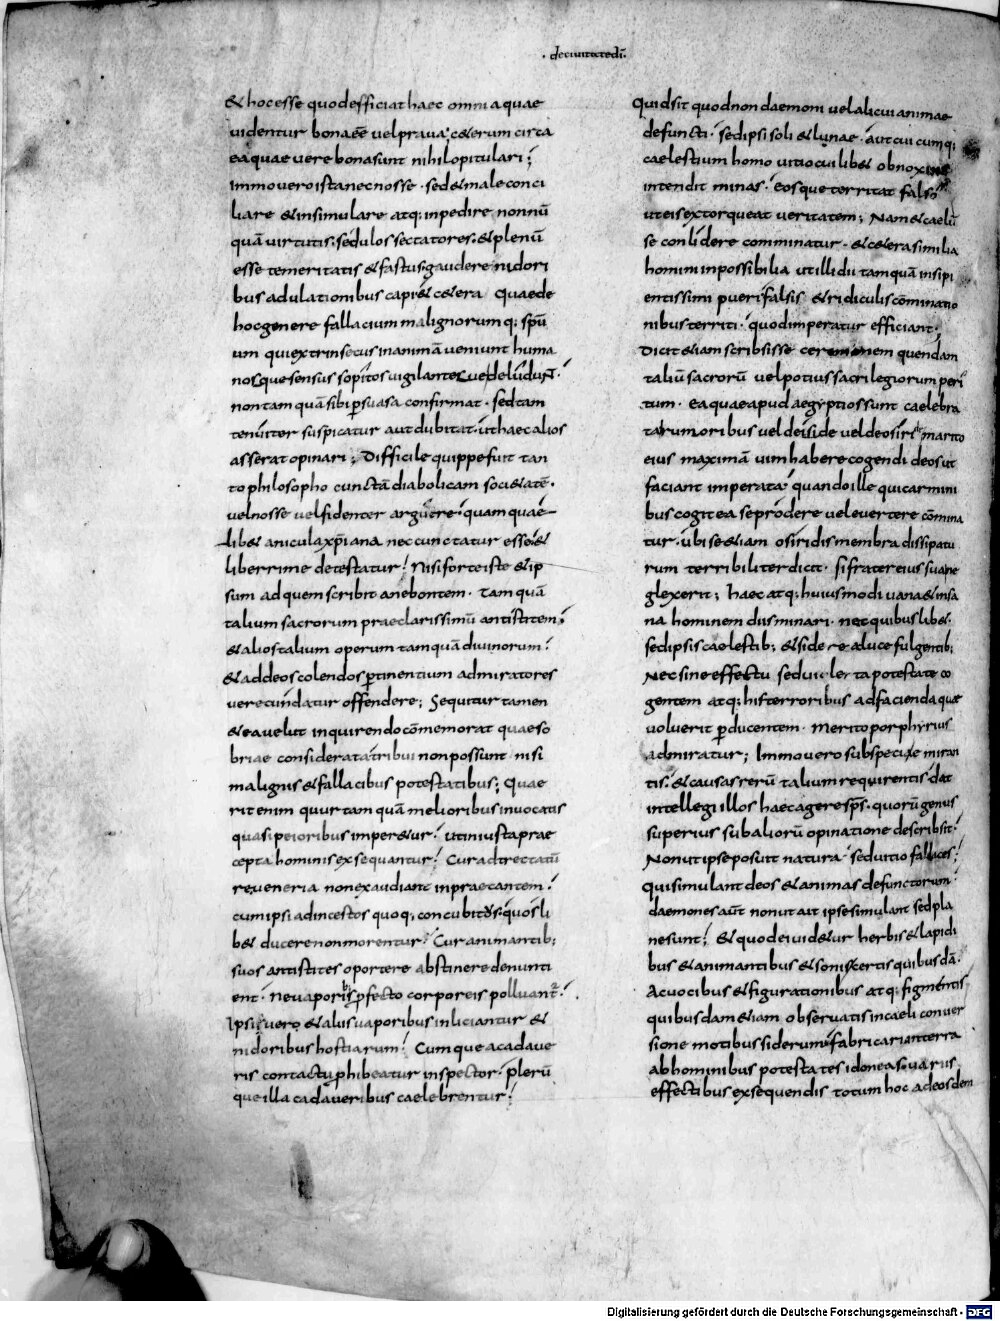 · deciuitatedi̅ ·
& hoc esse quodefficiat haec omnia quae
uidentur bona ee̅ uel praua; c&erum circa
ea quae uere bona sunt nihil opitulari;
Immo uero ista nec nosse · sed & male conci
liare & insimulare atq; inpedire nonnu̅
qua̅ uirtutis sedulos sectatores · & plenu̅
esse temeritatis & fastus gaudere nidori
bus adulationibus capi & c&era Quae de
hoc genere fallacium malignorumq; spu̅
um qui extrinsecus in anima̅ ueniunt huma
nosque sensus sopitos uigilantesue deludunt ·
non tam quā sibi p̱suasa confirmat · sed tam
tenuiter suspicatur aut dubitat · ut haec alios
asserat opinari; Difficile quippe fuit tan
to philosopho cuncta̅ diabolicam soci&ate̅ ·
uel nosse uel fidenter arguere quam quae
lib& anicula xp̅iana nec cunctatur esse &
liberrime detestatur! Nisi forte iste & ip
sum ad quem scribit anebontem · tam quā
talium sacrorum praeclarissimu̅ antistitem;
& alios talium operum tamqua̅ diuinorum!
& ad deos colendos p̱tinentium admiratores
uerecundatur offendere; Sequitur tamen
& ea uelut inquirendo co̅memorat quae so
briae considerata tribui non possunt · nisi
malignis & fallacibus potestatibus; Quae
rit enim quur tam quā melioribus inuocatis
quasi peioribus imper&ur! ut iniusta prae
cepta hominis exsequantur! Cur adtrectatu̅
re ueneria non exaudiant inpraecantem!
cum ipsi ad incestos quoq; concubitus quosli
b& ducere non morentur! Cur animantib;
suos antistites oportere abstinere denunti
ent · ne uaporibus p̱fecto corporeis polluant̅!
Ipsi uero & aliis uaporibus inliciantur &
nidoribus hostiarum! Cumque a cadaue
ris contactu p̱hibeatur inspector · pleru̅
que illa cadaueribus caelebrentur!
Quid sit quod non daemoni uel alicui animae
defuncti · sed ipsi soli & lunae · aut cuicumq;
caelestium homo uitio cuilib& obnoxius
intendit minas · eosque territat falso
ut eis extorqueat ueritatem; Nam & caelu̅
se conlidere comminatur · & c&era similia
homini inpossibilia ut illi dii tamquā insipi
entissimi pueri falsis & ridiculis co̅minatio
nibus territi · quod imperatur efficiant;
Dicit &iam scribsisse ceremonem quendam
taliu̅ sacroru̅ uel potius sacrilegiorum peri
tum · ea quae apud aegyptios sunt caelebra
ta rumoribus uel de iside uel de osiride marito
eius maxima̅ uim habere cogendi deos ut
faciant imperata quando ille qui carmini
bus cogit ea se prodere uel euertere co̅mina
tur · ubi se &iam osiridis membra dissipatu
rum terribiliter dicit · si fratereius suane
glexerit; haec atq; huiusmodi uana & insa
na hominem diis minari · nec quibuslib& ·
sed ipsis caelestib; & siderea luce fulgentib;
Nec sine effectu sed uiolenta potestate co
gentem atq; his terroribus ad facienda quae
uoluerit p̱ducentem · merito porphyrius
admiratur; Immo uero sub specie miran
tis · & causas reru̅ talium requirentis dat
intellegi illos haec agere sp̅s · quoru̅ genus
superius sub alioru̅ opinatione describsit!
Non ut ipse posuit natura sed uitio fallaces;
qui simulant deos & animas defunctorum ·
daemones aut̅ non ut ait ipse simulant sed pla
ne sunt; & quod ei uid&ur herbis & lapidi
bus & animantibus & sonis certis quibusda̅ ·
Ac uocibus & figurationibus atq; figmentis
quibusdam &iam obseruatis in caeli conuer
sione motibus siderum fabricari in terra
ab hominibus potestates idoneas uariis
effectibus exsequendis totum hoc ad eosdem
Digitalisierung gefördert durch die Deutsche Forschungsgemeinschaft - DFG